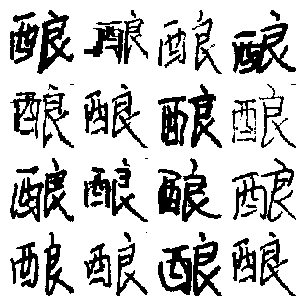 酿酿酿酿
酿酿酿酿
酿酿酿酿
酿酿酿酿